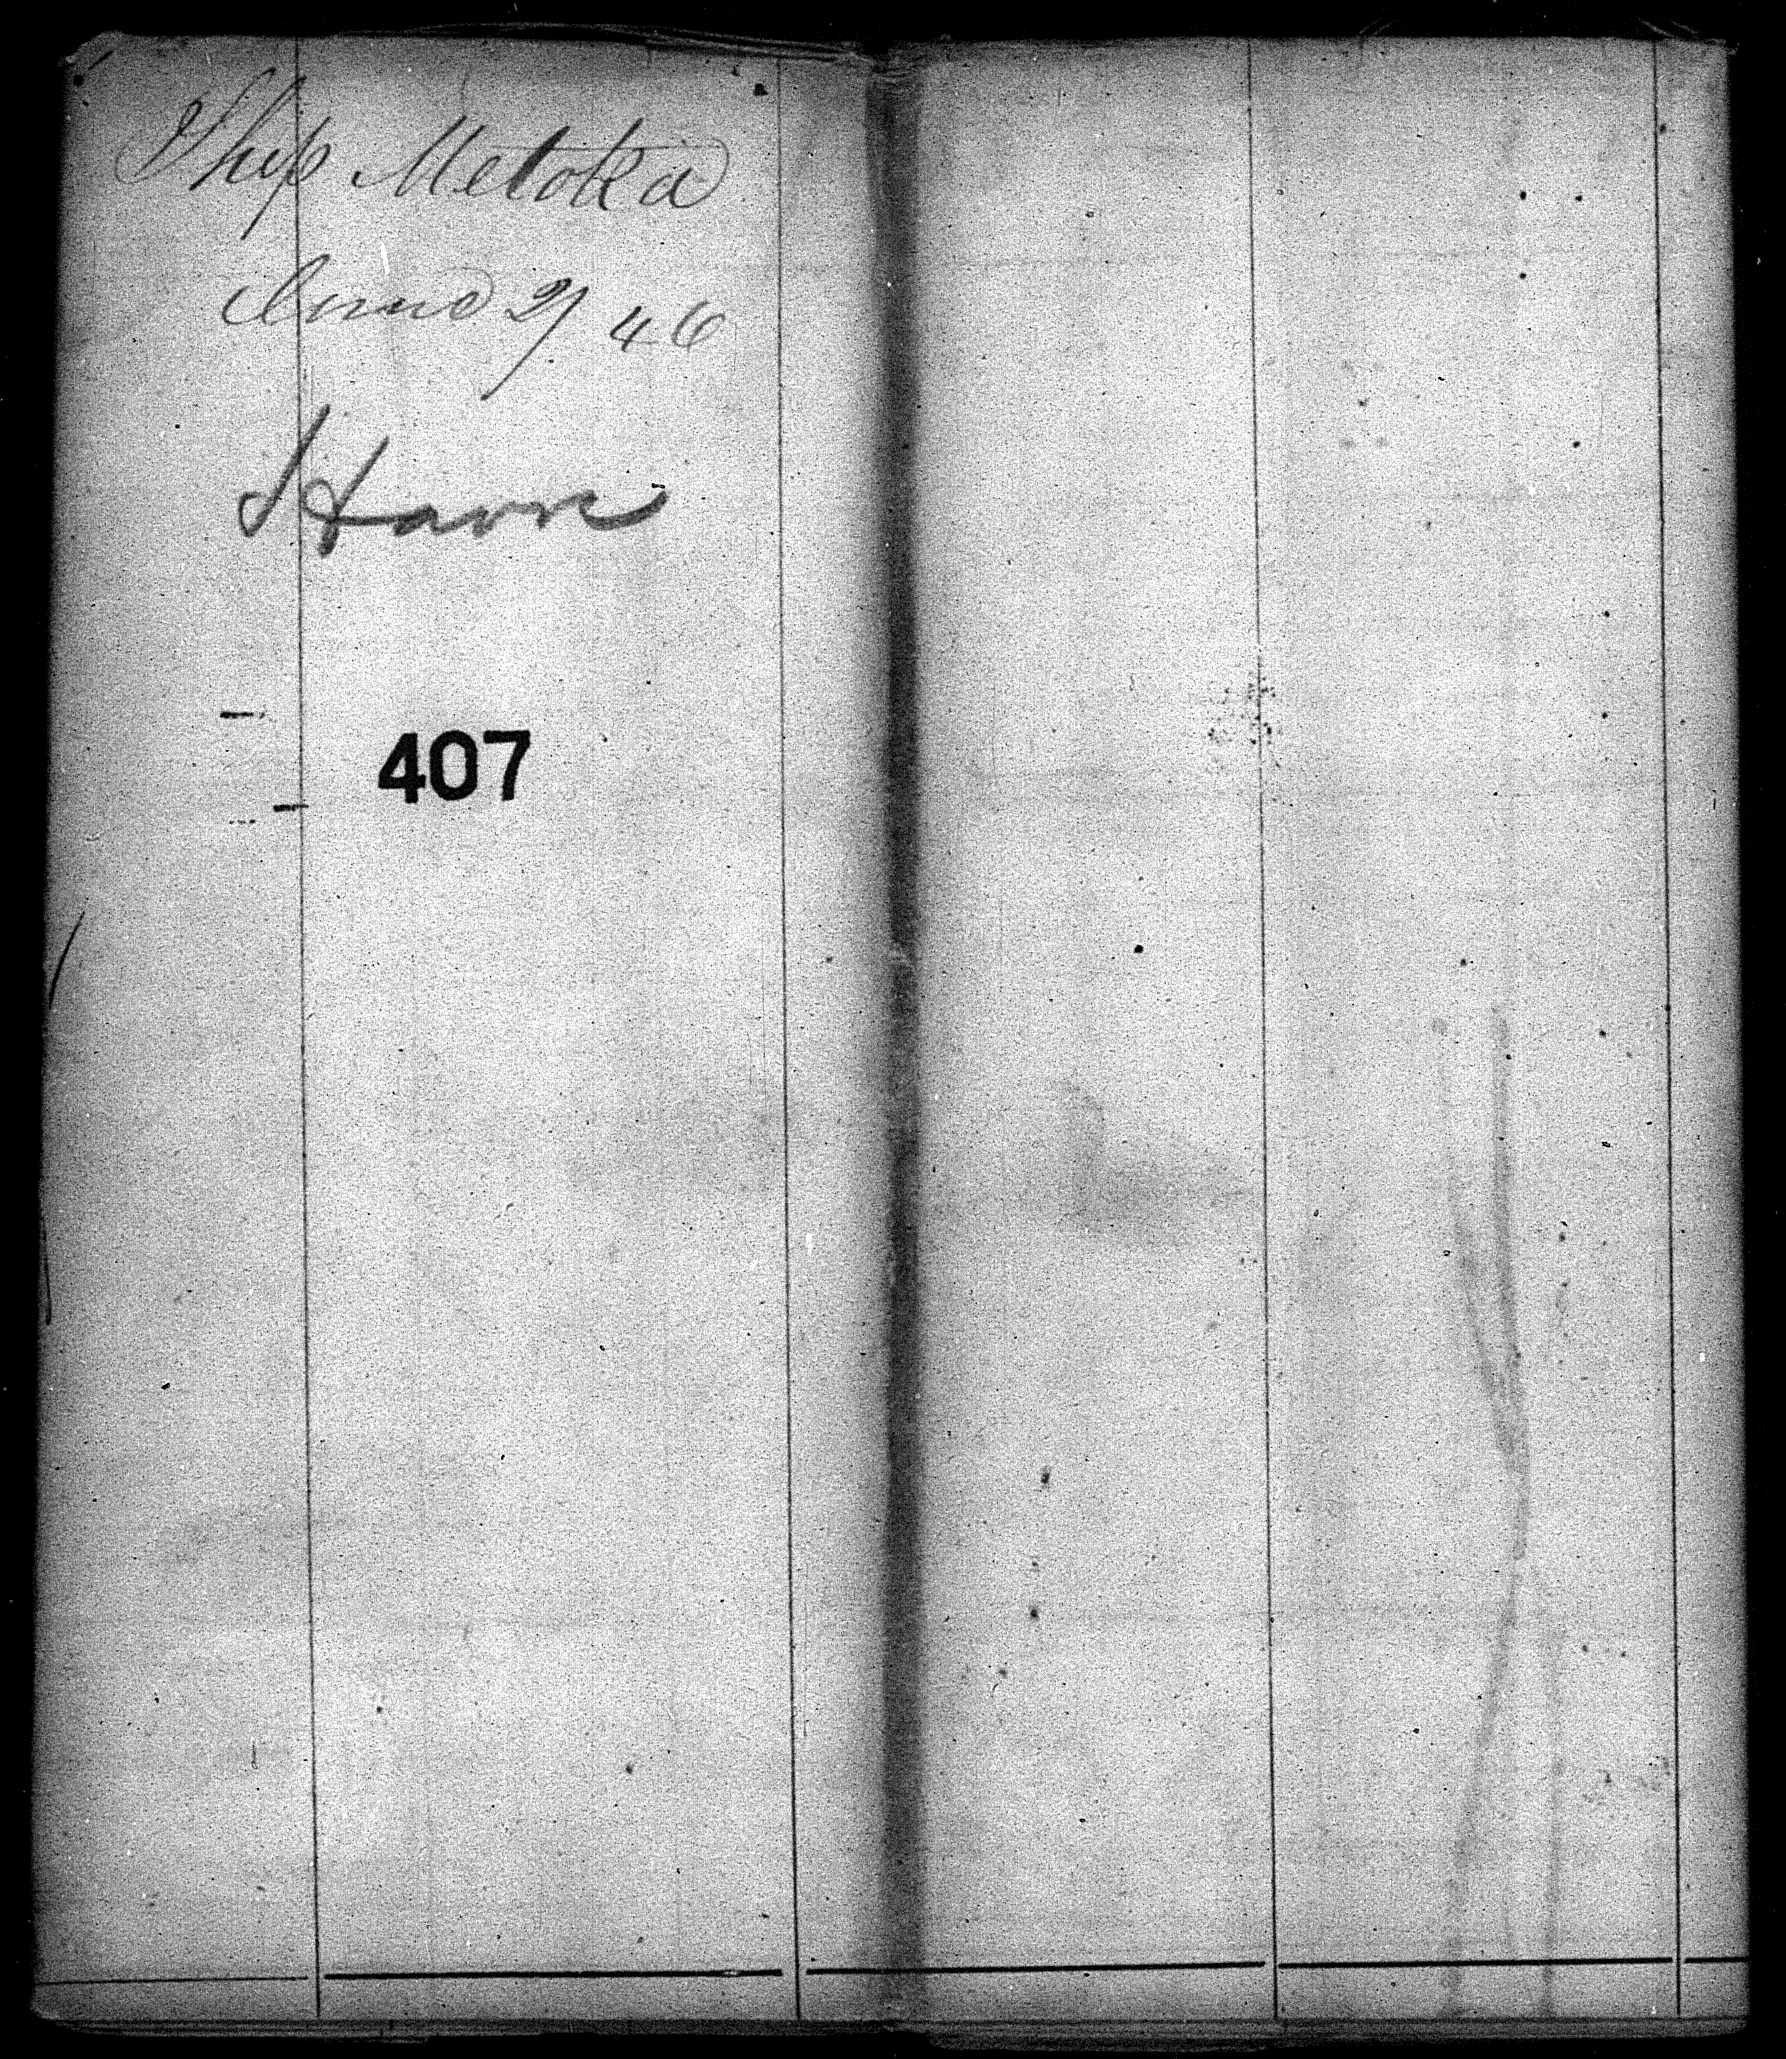 Ship Metoka
June 2/46
Havre
407